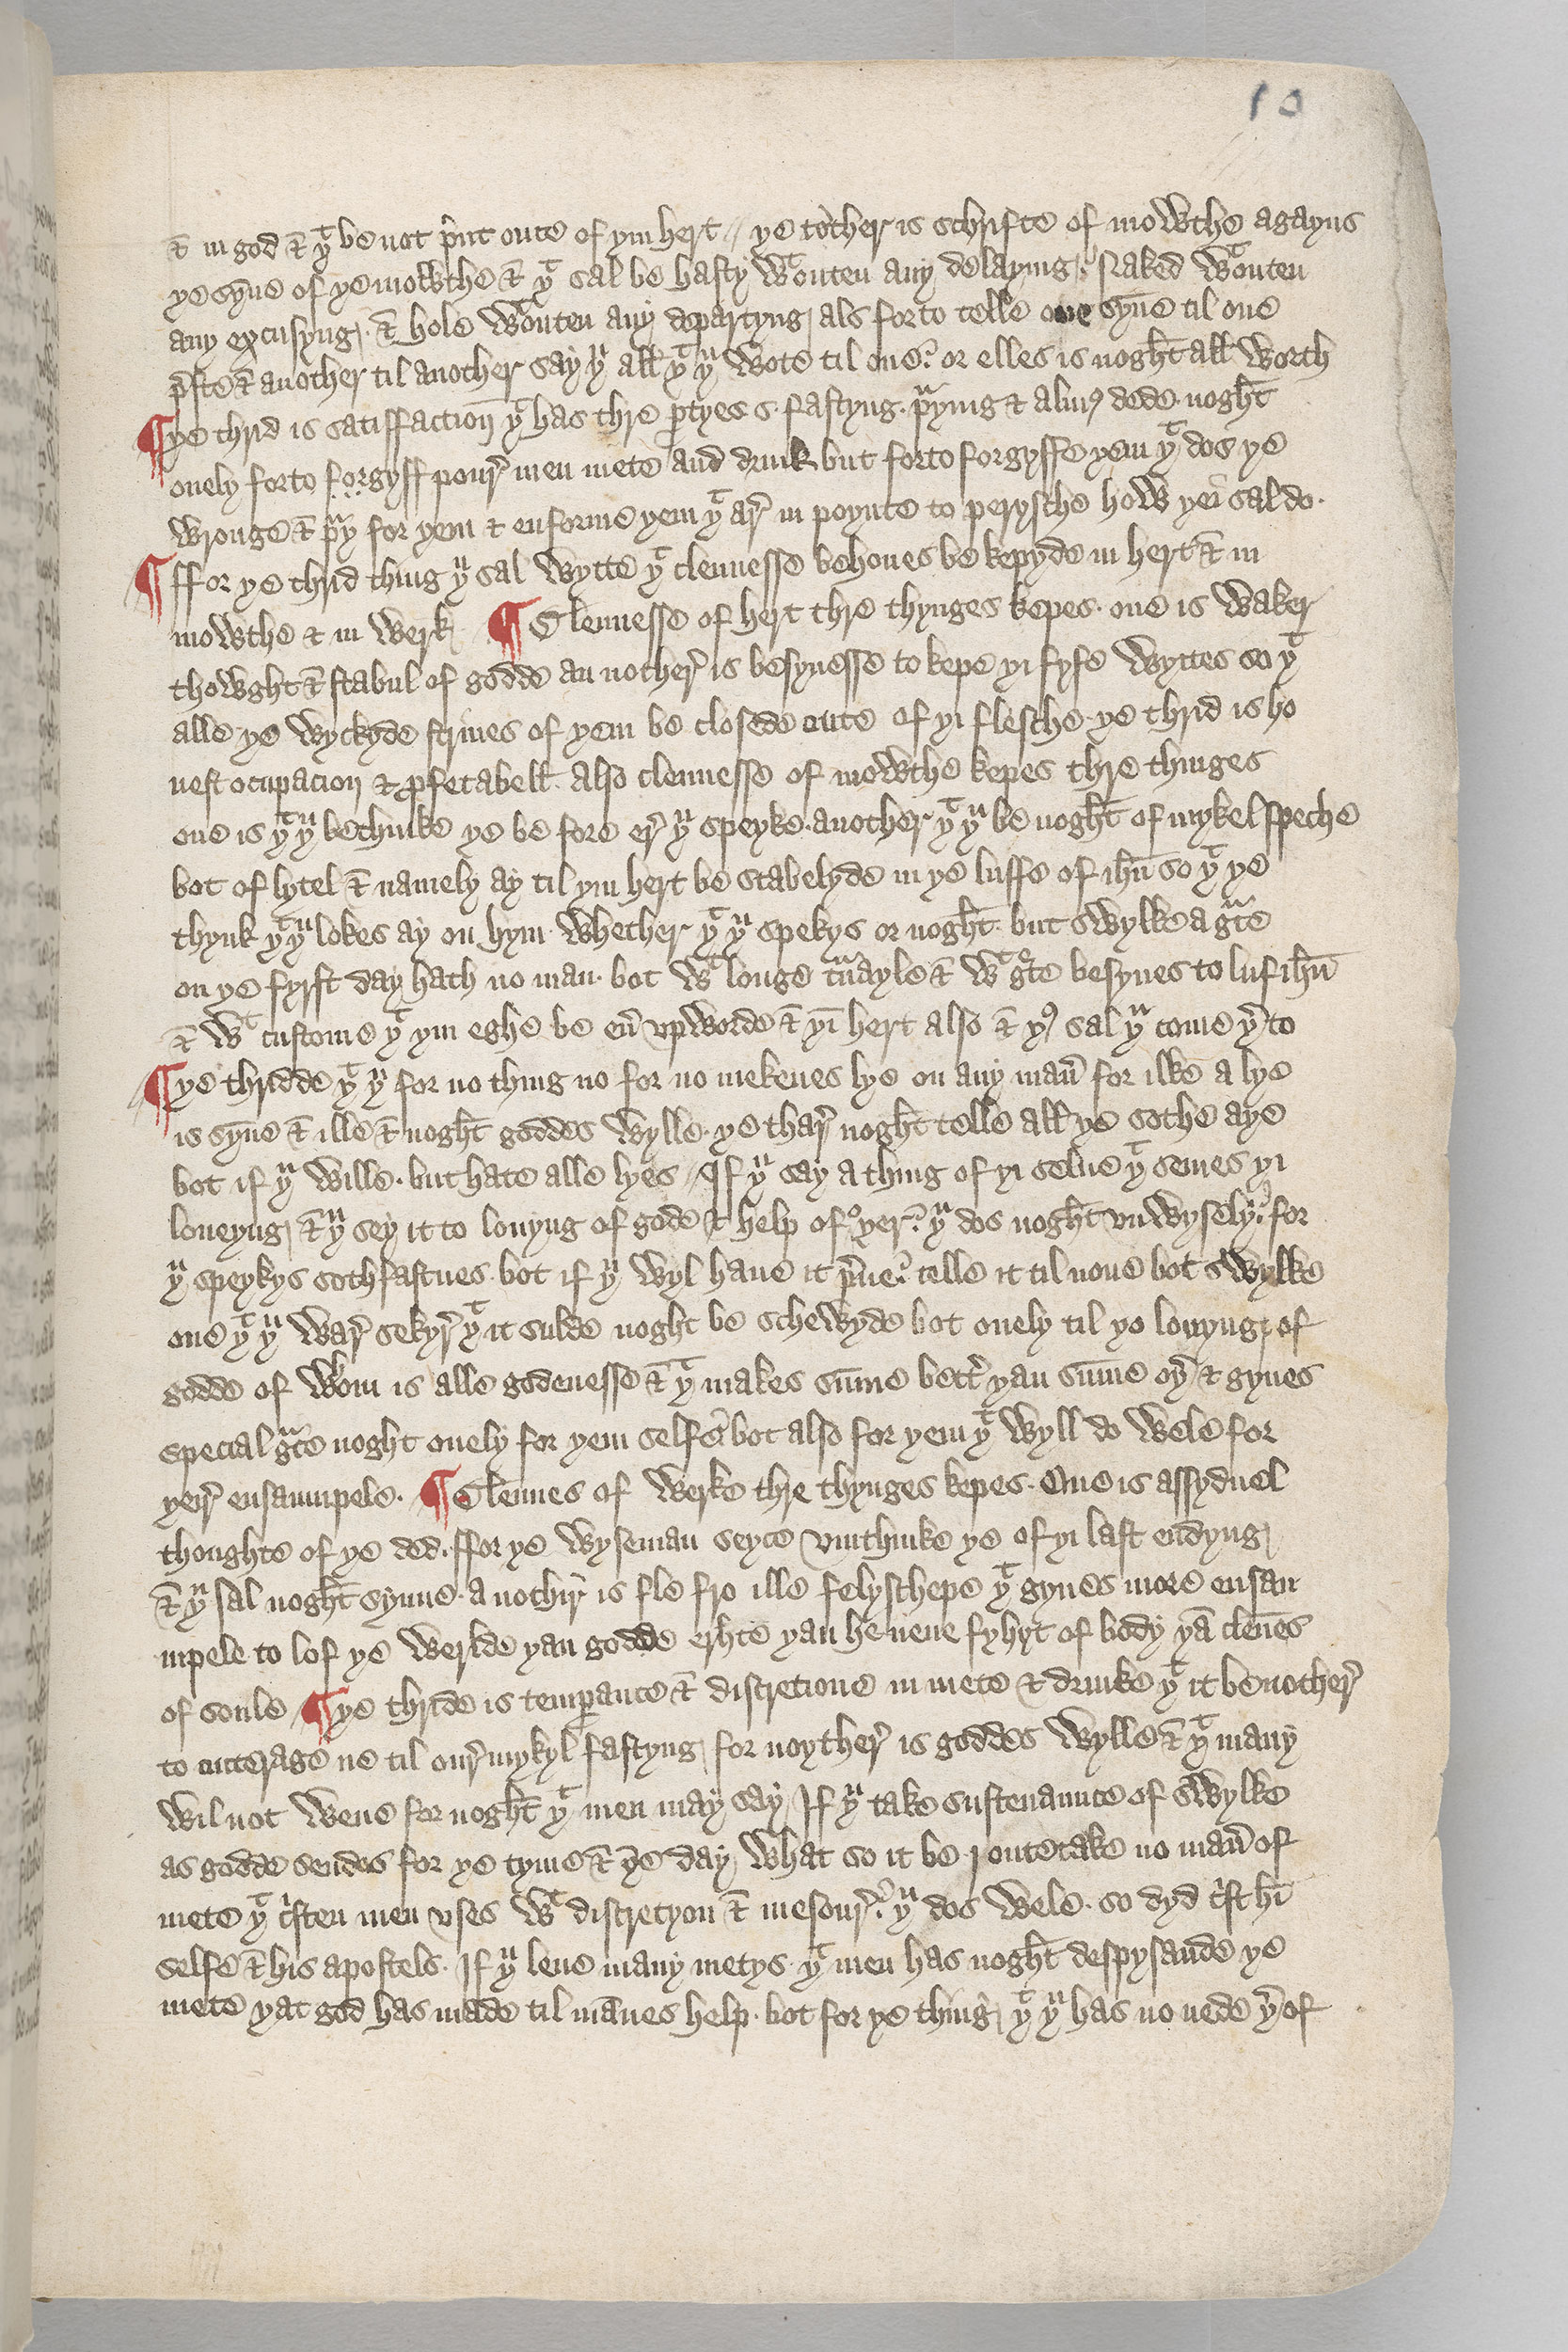 10
& in god & yᵗ be not p̕nt oute of yin hert // ye tother is schrifte of mowthe agayns
ye syn̄e of ye mowthe & yᵗ sal be hasty wᵗouten any delaying. Naked wᵗouten
any excusyng. & hole wᵗouten any departyng als forto telle one syn̄e til one
p̕ste & another til another say yᵘ all yᵗ yᵘ wote til one? or elles is noght all worth
¶ ye thrid is satiffaction yᵗ has thre p̱tyes s. fastyng. pᵃying & almꝰ dede. noght
onely forto forgyff pour̕ men mete and drink but forto forgyffe yem yᵗ dos ye
wronge & pᵃy for yem & enforme yem yᵗ ar̕ in poynte to perysche how yei sal do.
¶ ffor ye thrid thing yᵘ sal wytte yᵗ clennesse behoues be kepyde in hert & in
mowthe & in werk ¶ Clennesse of hert thre thynges kepes. one is waker
thowght & stabul of godde an nother̕ is besynesse to kepe yi fyfe wyttes so yᵗ
alle ye wyckyde striues of yem be closede oute of yi flesche. ye thrid is ho
nest ocupacion & ꝓfetabell. also clennesse of mowthe kepes thre thinges
one is yᵗ yᵘ bethinke ye be fore er̕ yᵘ speyke. another yᵗ yᵘ be noght of mykel speche
bot of lytel & namely ay til yin hert be stabelyde in ye luffe of ihū so yᵗ ye
thynk yᵗ yᵘ lokes ay on hym. whether yᵗ yᵘ spekys or noght. but swylke a gᵃce
on ye fyrst day hath no man. bot wᵗ longe tᵃuayle & wᵗ grete besynes to luf ihū
& wᵗ custome yᵗ yin eghe be eu̕ vpworde & yī hert also & yꝰ sal yᵘ come y̕ to
¶ ye thridde yᵗ yᵘ for no thing no for no mekenes lye on any man̄ for ilke a lye
is syn̄e & ille & noght goddes wylle. ye thar̕ noght telle all ye sothe aye
bot if yᵘ wille. but hate alle lyes // If yᵘ say a thing of yi selue yᵗ semes yi
loueyng & yᵘ sey it to louyng of gode & help of oyer? yᵘ dos noght vnwysely? for
yᵘ speykys sothfastnes. bot if yᵘ wyl haue it p̕ue? telle it til none bot swylke
one yᵗ yᵘ war̕ sekyr̕ yᵗ it sulde noght be schewyde bot onely til yo louyng of
godde of wʰom is alle godenesse & yᵗ makes sum̄e bett̕ yan sum̄e oy̕ & gyues
special gᵃce noght onely for yem selfe? bot also for yem yᵗ wyll do wele for
yer̕ ensaumpele. ¶ Clennes of werke thre thynges kepes. One is assyduel
thoughte of ye ded. ffor ye wyseman seyce vmthinke ye of yi last endyng
& yᵘ sal noght synne. a nothir̕ is fle fro ille felyschepe yᵗ gyues more ensau
mpele to lof ye werlde yan godde erhte yan heuene fyhyt of body yā clen̄es
of soule ¶ ye thride is temꝑance & discretione in mete & drinke yᵗ it be nother̕
to outerage ne til our̕ mykyl fastyng, for noyther̕ is goddes wylle & yᵗ many
wil not wene for noght yᵗ men may say, If yᵘ take sustenaunce of swylke
as godde sendes for ye tyme & ye day, what so it be. I outetake no man̄ of
mete yᵗ c̕sten men vses wᵗ discretyon & mesour̕? yᵘ dos wele. so dyd c̕st hī
selfe & his apostels. If yᵘ leue many metys yᵗ men has noght despysande ye
mete yat god has made til man̄es help. bot for ye thing yᵗ yᵘ has no nede y̕of